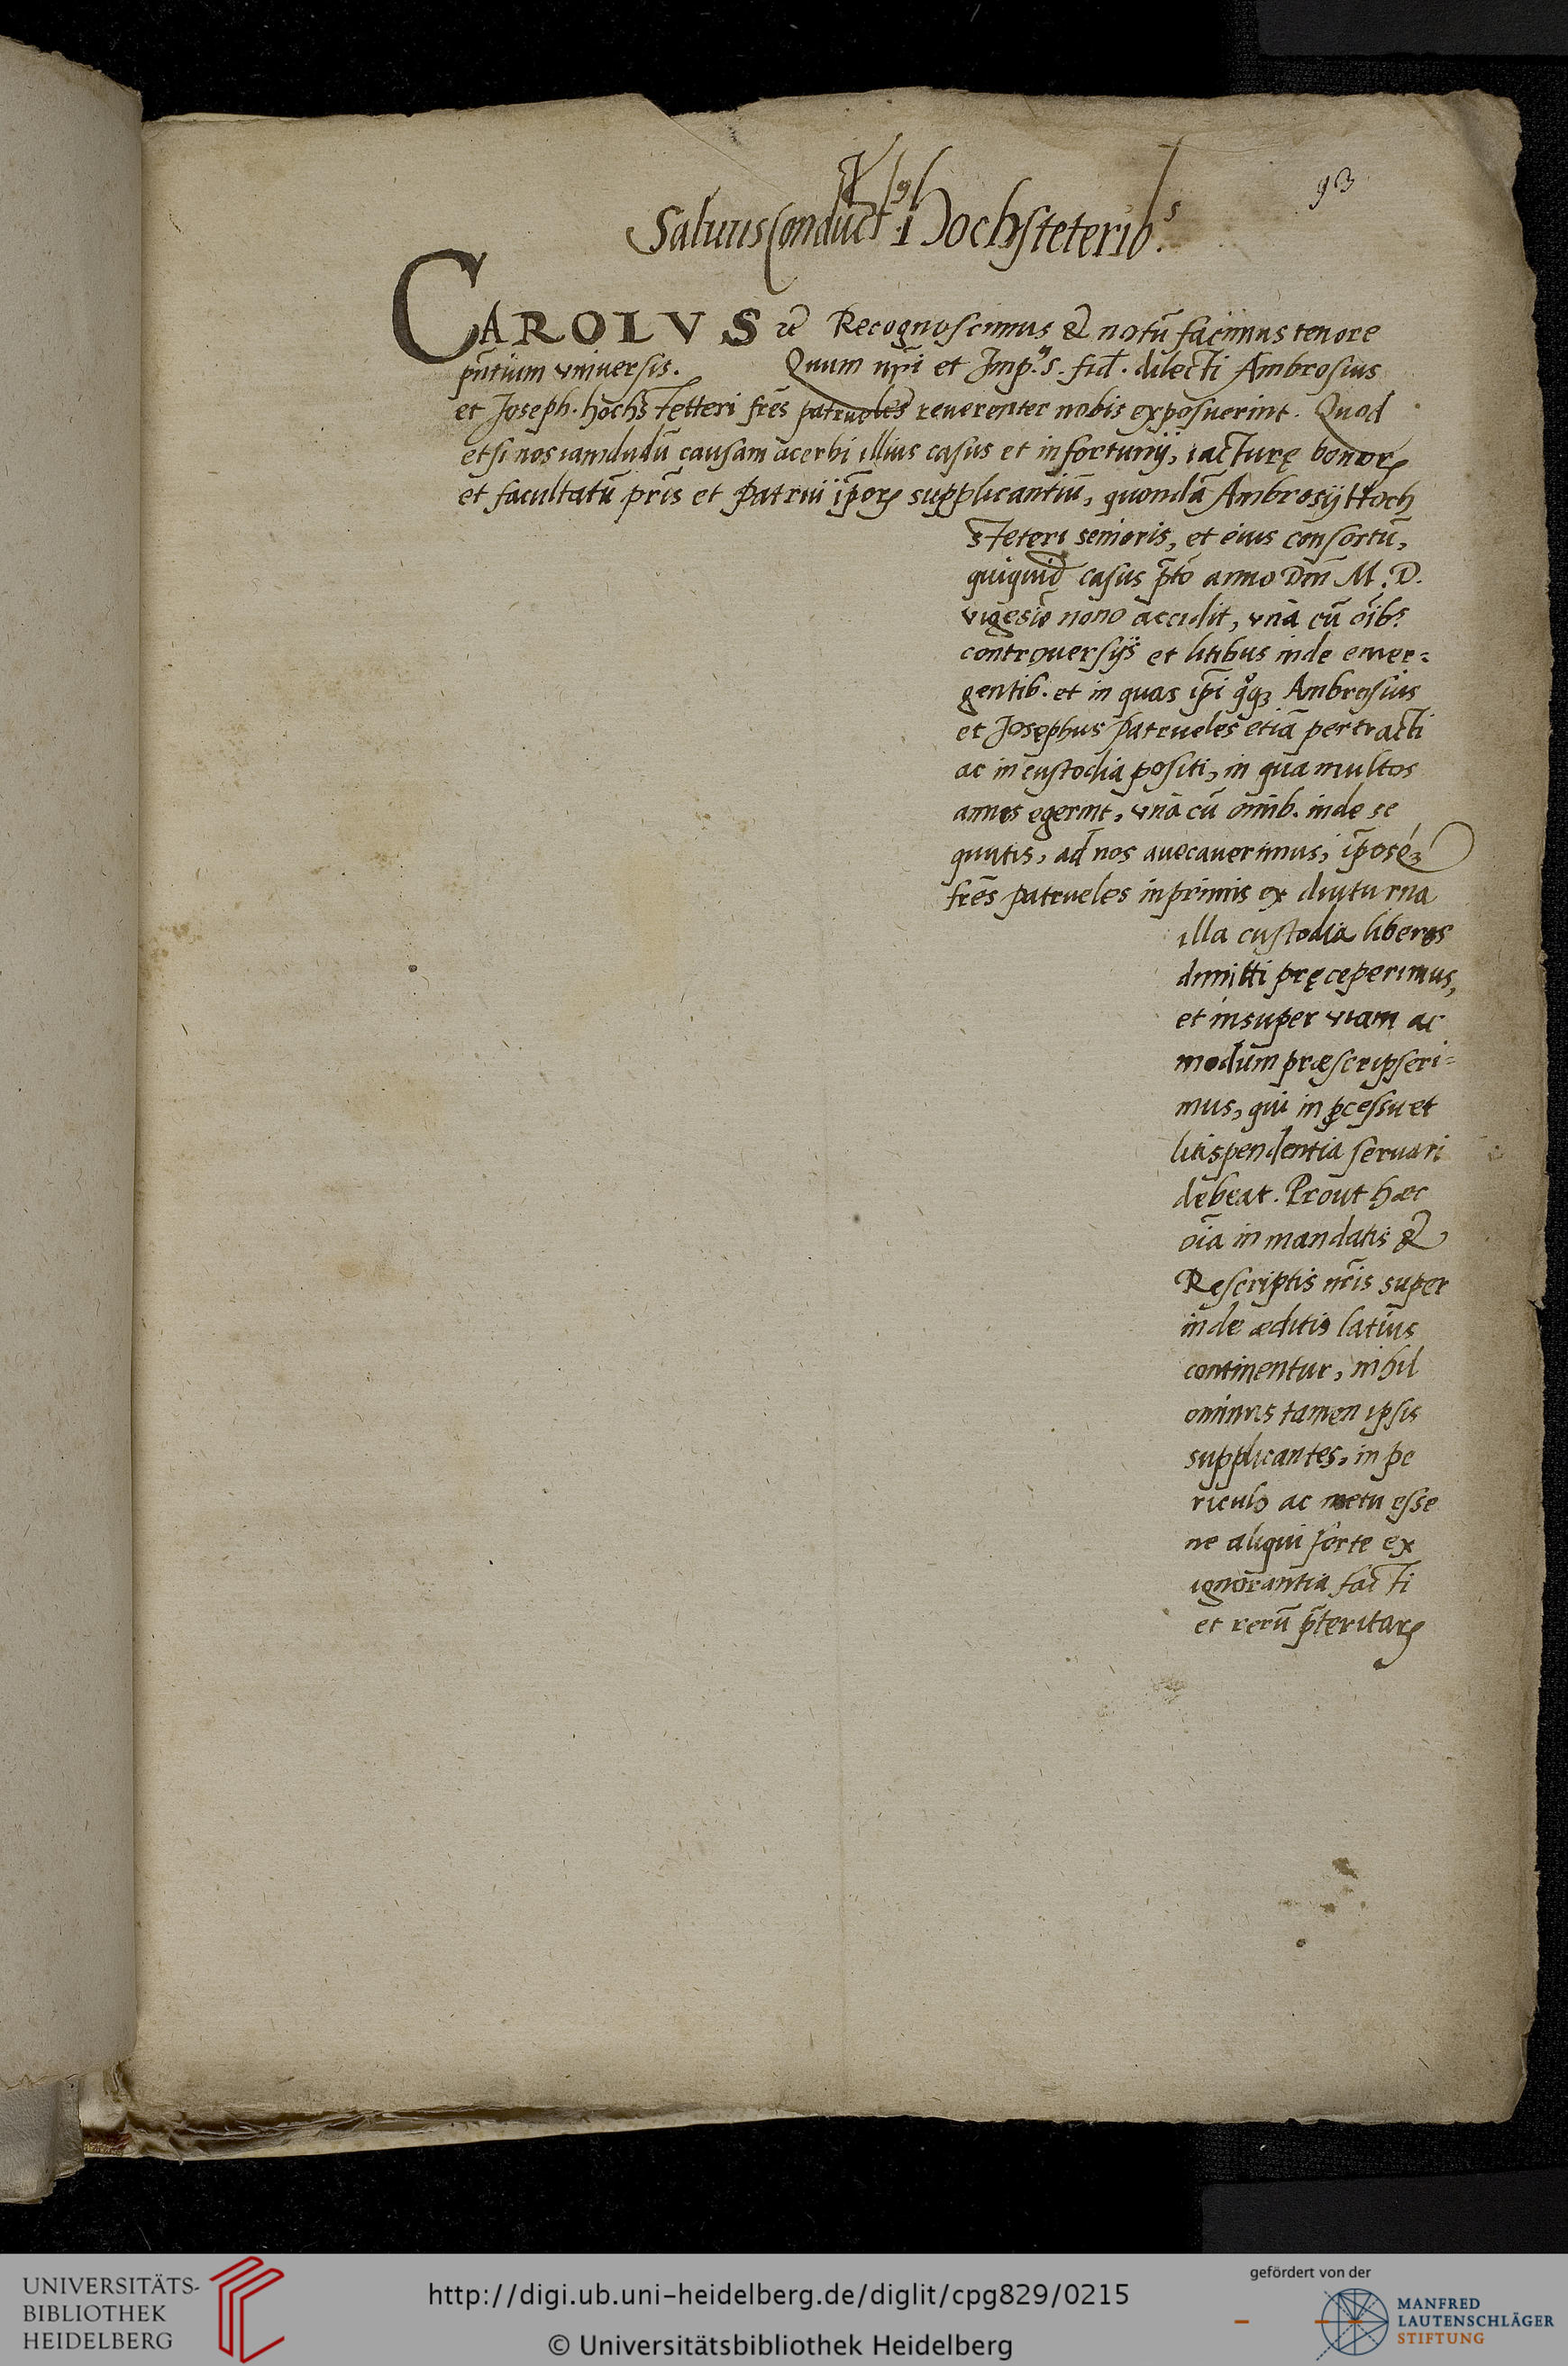 93
Saluus Conduct9 p Hochsteterib.s
CAROLVS ꝛc̃ Recognoscimus & notũ facimus tenore
pñtium vniuersis. Quum nr̃i et Imp.ij S. fid. dilecti Ambrosius
et Joseph. hochstetteri fr̃es patrueles reuerenter nobis exposuerint. Quod
etsi nos iamdudũ causam acerbi illius casus et infortunij, iacturę bonorꝝ
et facultatũ pr̃is et Patrui ip̃orꝝ supplicantiũ, quondã Ambrosij Hoch
steteri senioris, et eius consortũ,
quiquid̃ casus p̃to anno Dñi M. D.
vigesiõ nono accidit, vnà cũ oĩb9
controuersijs et litibus inde emer=
gentib. et in quas ip̃i qͦqꝫ Ambrosius
et Josephus patrueles etiã pertracti
ac in custodia positi, in qua multos
annos egerint, vnà cũ omnib. inde se
quutis, ad nos auocauerimus, ip̃osqꝫ
fr̃es patrueles inprimis ex diuturna
illa custodia liberos
dimitti pręceperimus,
et insuper viam ac
modum præscripseri=
mus, qui in ꝓcessu et
litispendentia seruari
debeat. Prout hæc
oĩa in mandatis &
Rescriptis nr̃is super
inde æditis latius
continentur, nihil
ominus tamen ipsis
supplicantes, in pe
riculo ac metu esse
ne aliqui forte ex
ignorantia facti
et rerũ p̃teritarꝝ
UNIVERSITÄTS-
BIBLIOTHEK
HEIDELBERG
http://digi.ub.uni-heidelberg.de/diglit/cpg829/0215
© Universitätsbibliothek Heidelberg
gefördert von der
MANFRED
LAUTENSCHLÄGER
STIFTUNG